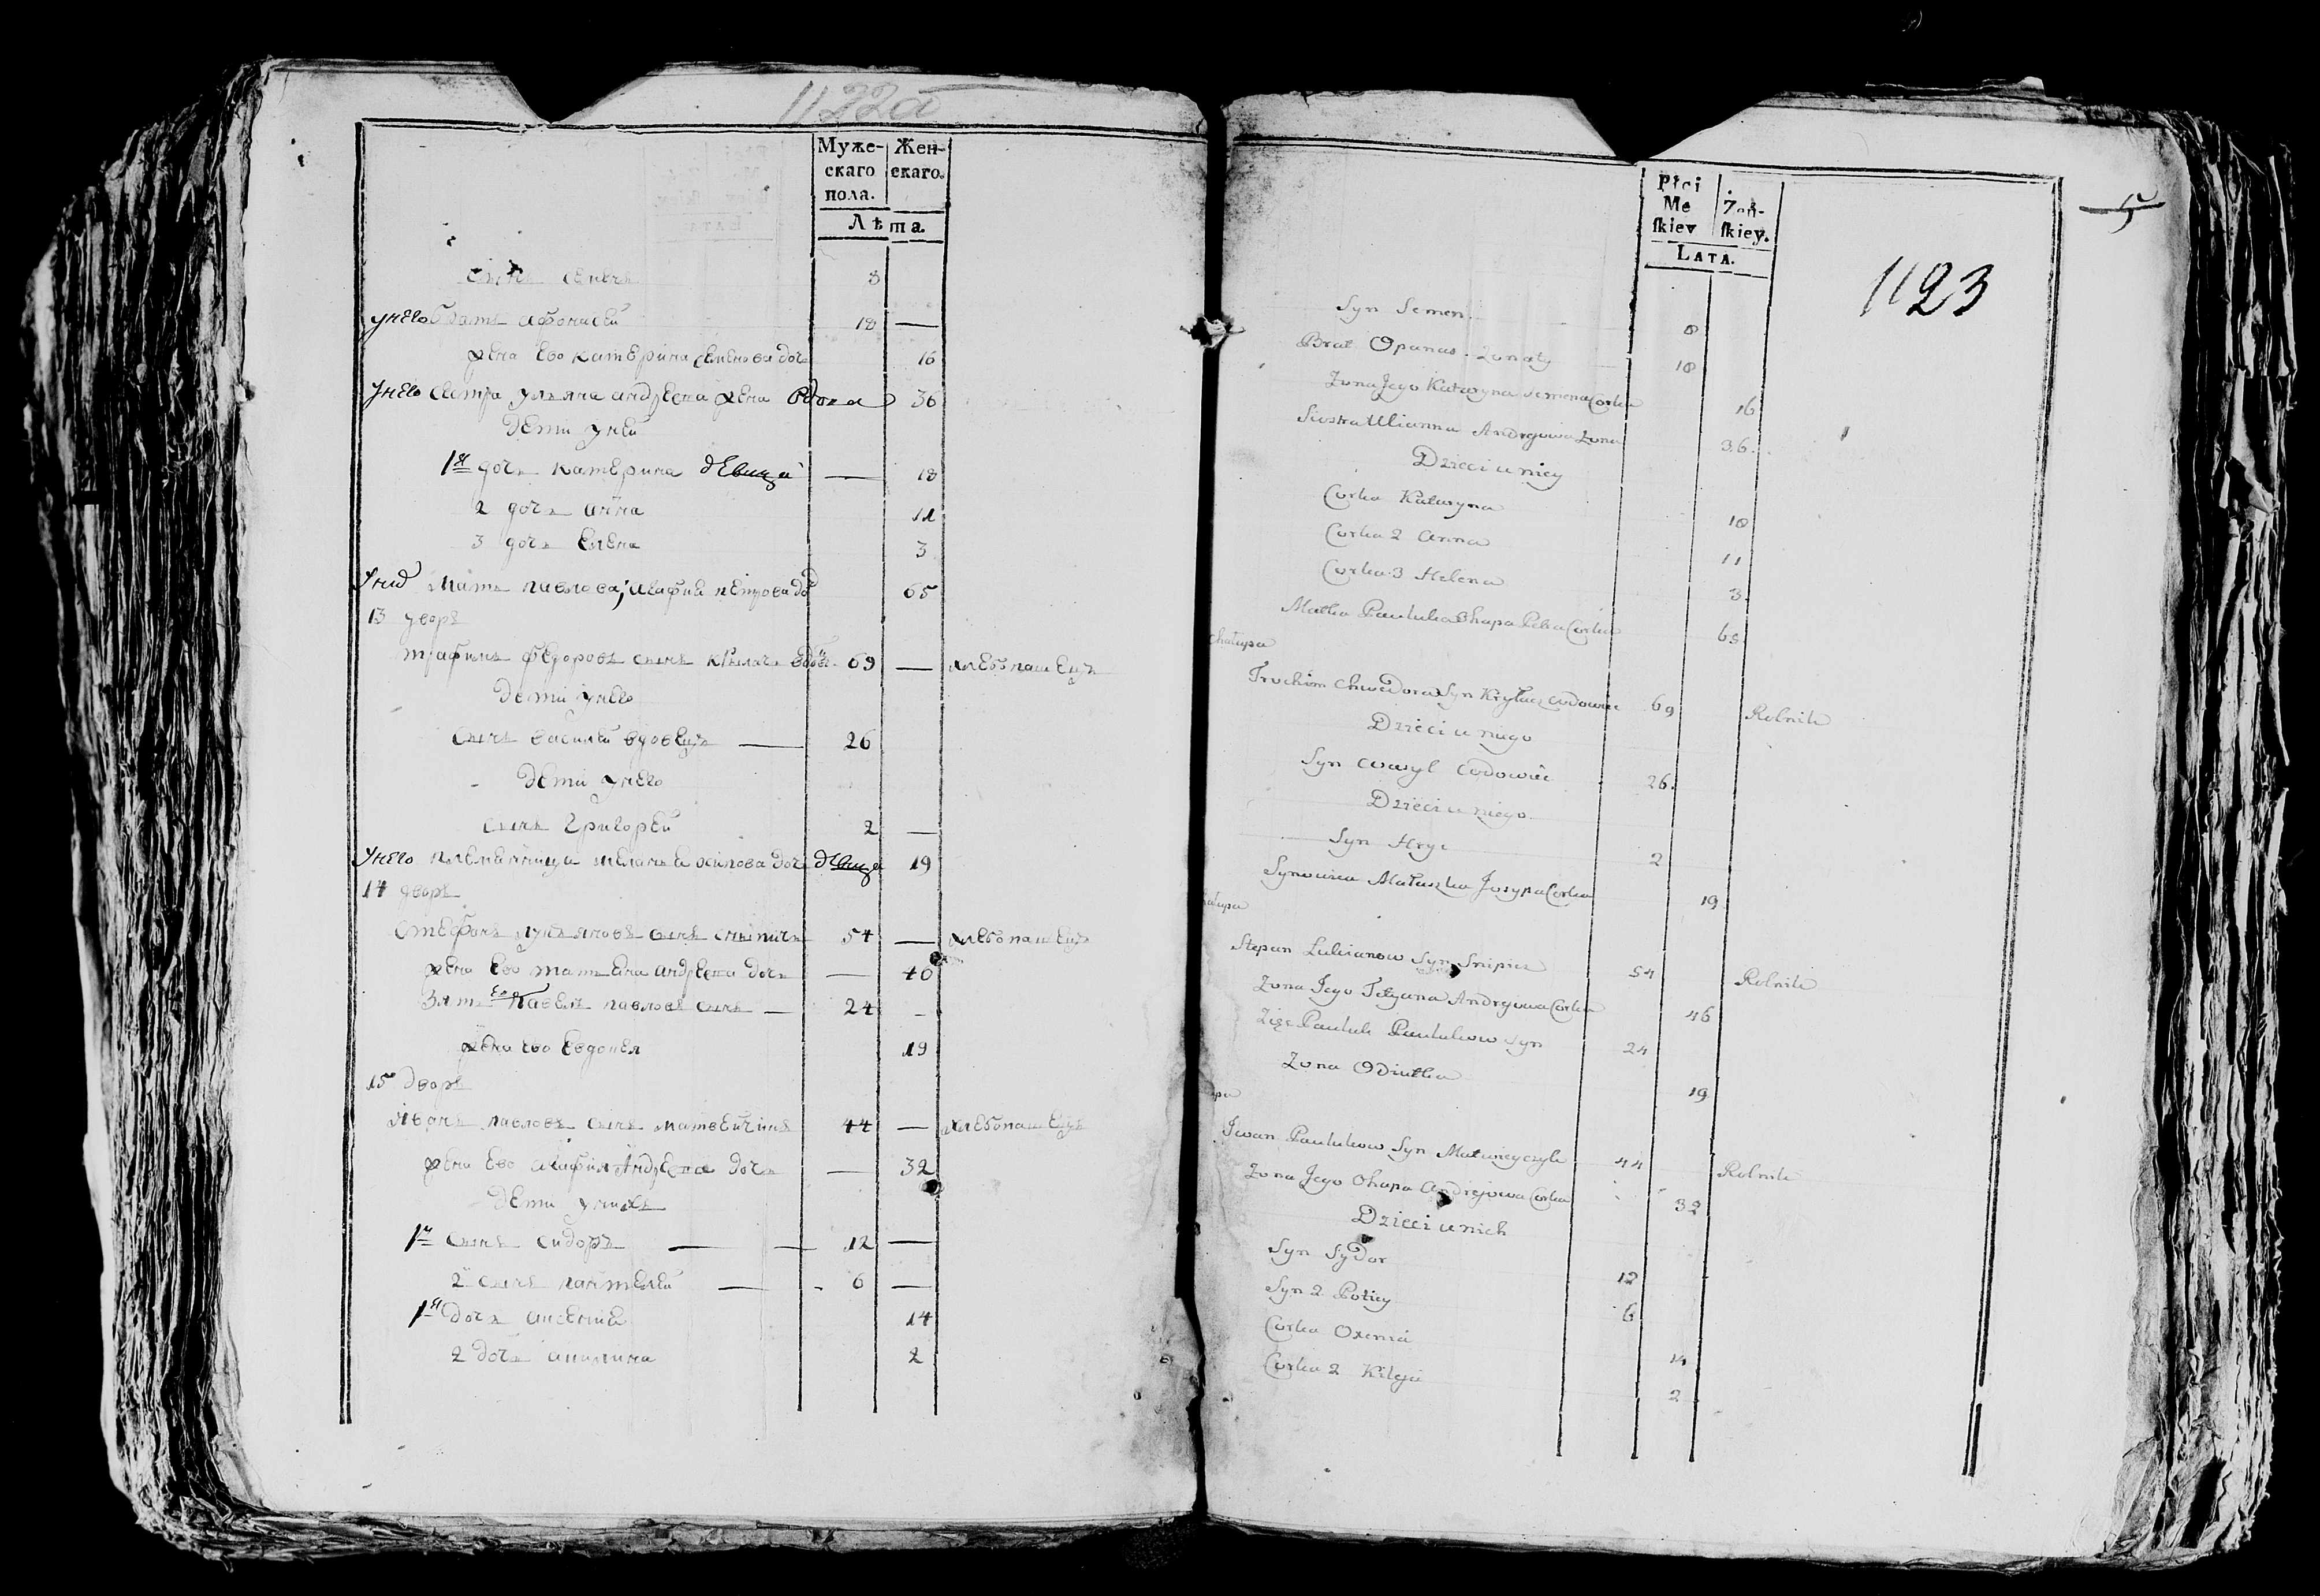 1122а
Муже-
скаго
пола.
Жен-
скаго.
Лѣта.
сынъ семенъ 3
унего братъ афонасей 18 —
жена ево катерина семенова дочь 16
унего сестра ульяна андреева жена вдова 36
дети уней
1я дочь катерина девица — 18
2 дочь анна 11
3 дочь елена 3
мать павлова, агафия петрова 65
13 дворъ
трафимъ федоровъ сынъ крылачъ вдовъ 69 — хлебопашецъ
дети унего
сынъ василей вдовецъ — 26
дети унего
сынъ григорей 2 —
унего племянница меланья осипова дочь девица 19
14 дворъ
стефанъ лукьяновъ сынъ снипичъ 54 — хлебопашецъ
жена ево татьяна андреева дочь — 46
зять ево павелъ павловъ сынъ — 24 -
жена ево евдокея 19
15 дворъ
иванъ павловъ сынъ матвейчикъ 44 — хлебопашецъ
жена ево агафия андреева дочь — 32
дети унихъ
1й сынъ сидоръ — — 12 —
2й сынъ пантелей — - 6 —
1я дочь аксения 14
2 дочь акилина 2
1123
Płci
Me
skiey
Żeń-
skiey.
LATA.
Syn Semen 8
Brat Opanas żonaty 18
Zona Jego Kataryna Semena Corka 16
Siostra Ulianna Andrejowa żona 36.
Dzieci u niey
Corka Kataryna 18
Corka 2 Anna 11
Corka 3 Helena 3
Matka Pauluka Ohapa Petra Corka 65
chałupa
Trochim Chwedora Syn Kryłacz wdowiec 69 Rolnik
Dzieci u niego
Syn Wasyl wdowiec 26.
Dzieci u niego
Syn Hryc 2
Synowica Małaszka Josypa Corka 19
Stepan Lukianow Syn Snipicz 54 Rolnik
Zona Jego Tetyana Andrejowa Corka 46
Zięć Pauluk Paulukow Syn 24
Zona Odiutka 19
Iwan Paulukow Syn Matwieyczyk 44 Rolnik
Zona Jego Ohapa Andrejowa Corka 32
Dzieci u nich
Syn Sydor 12
Syn 2 Potiey 6
Corka Oxenia 14
Corka 2 Kilyja 2